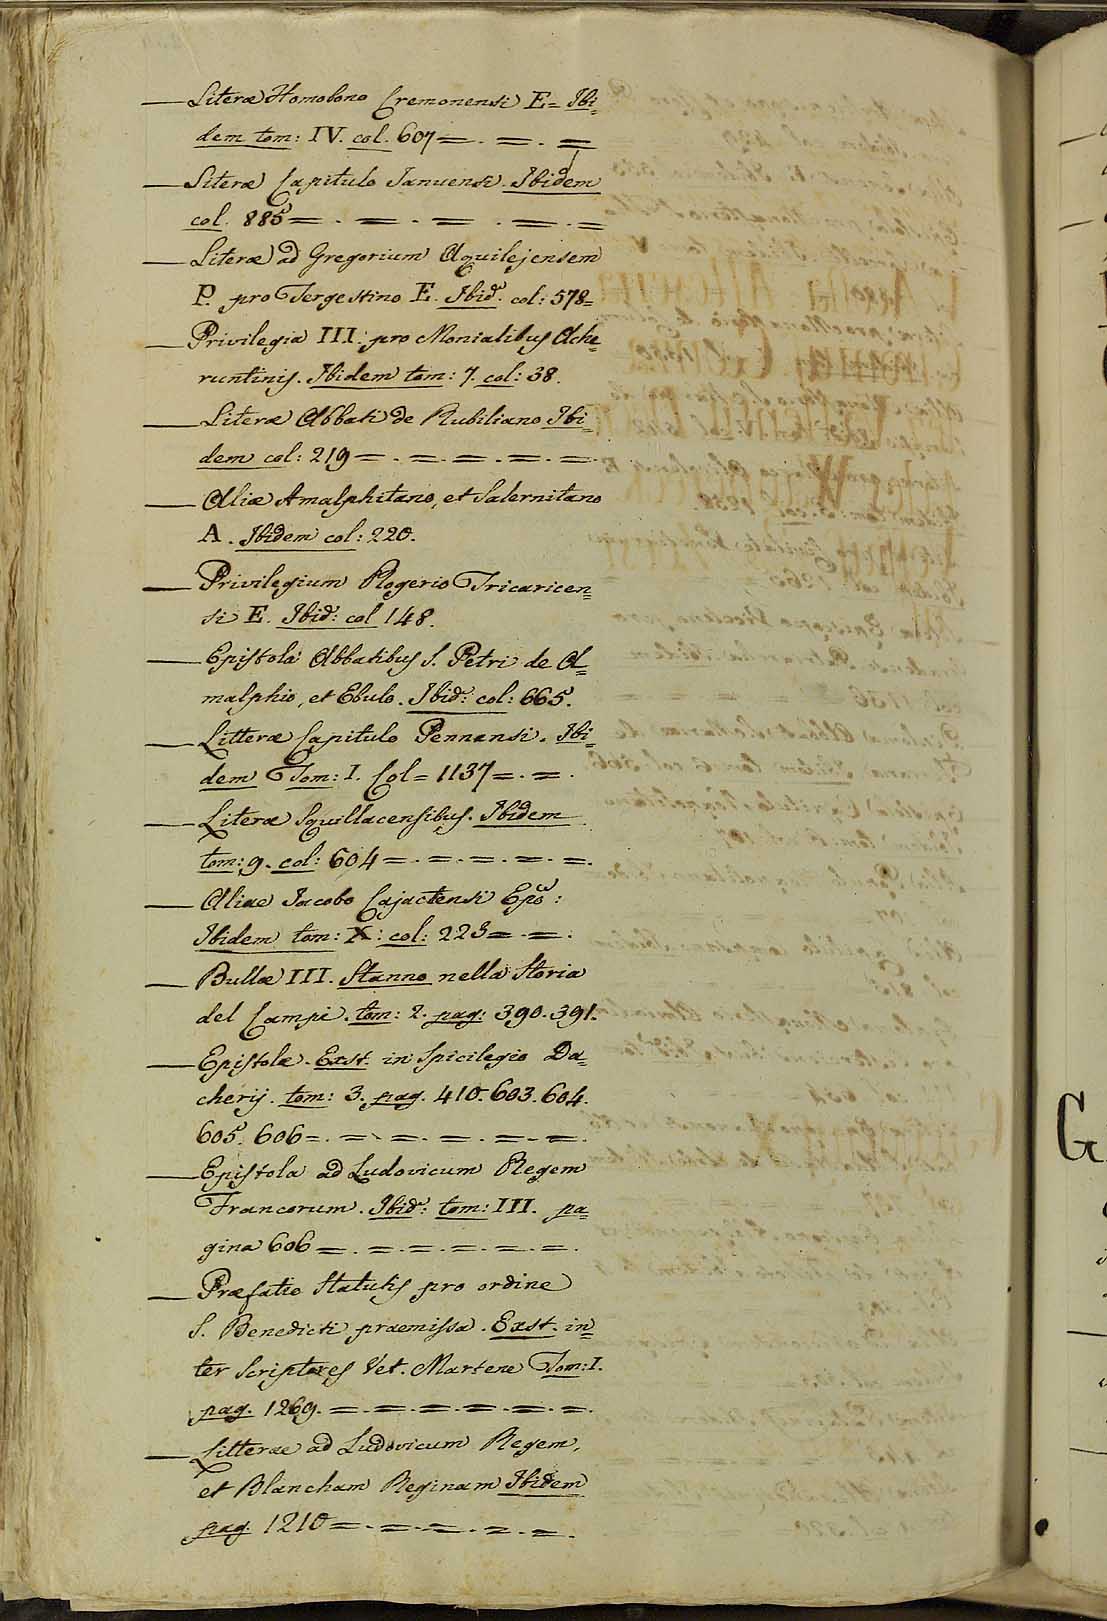 — Literæ Homobono Cremonensi E= Ibi=
dem tom: IV. col. 607 = . = . =
— Literæ Capitulo Januensi. Ibidem
col. 885 = . = . = . = . =
— Literæ ad Gregorium Aquilejensem
P. pro Tergestino E. Ibid. col: 578=
— Privilegia III. pro Monialibus Ache=
runtinis. Ibidem tom: 7. col: 38.
— Literæ Abbati de Rubiliano Ibi=
dem col: 219 = . = . = . = . = .
— Aliæ Amalphitano, et Salernitano
A. Ibidem col: 220.
— Privilegium Rogerio Tricaricen=
si E. Ibid: col 148.
— Epistola Abbatibus S. Petri de A=
malphio, et Ebulo. Ibid: col: 665.
— Litteræ Capitulo Pennensi. Ibi=
dem Tom: I. Col= 1137 = . = .
— Literæ Squillacensibus. Ibidem
tom: 9. col: 604 = . = . = . = . = .
— Aliae Jacobo Cajactensi Epõ:
Ibidem tom: X: col: 223 = . = .
— Bullæ III. Stanno nella Storia
del Campi. tom: 2. pag: 390. 391.
— Epistolæ. Exst. in Spicilegio Da=
cherij. tom: 3. pag. 410. 603. 604.
605. 606 = . = . = . = . = . = .
— Epistola ad Ludovicum Regem
Francorum. Ibid: tom: III. pa=
gina 606 = . = . = . = . = . = .
— Præfatio Statutis pro ordine
S. Benedicti praemissa. Exst. in=
ter Scriptores Vet. Martene Tom: I.
pag. 1269. = . = . = . = . = . = .
— Litterae ad Ludovicum Regem,
et Blancham Reginam Ibidem
pag. 1210 = . = . = . = . = .
G